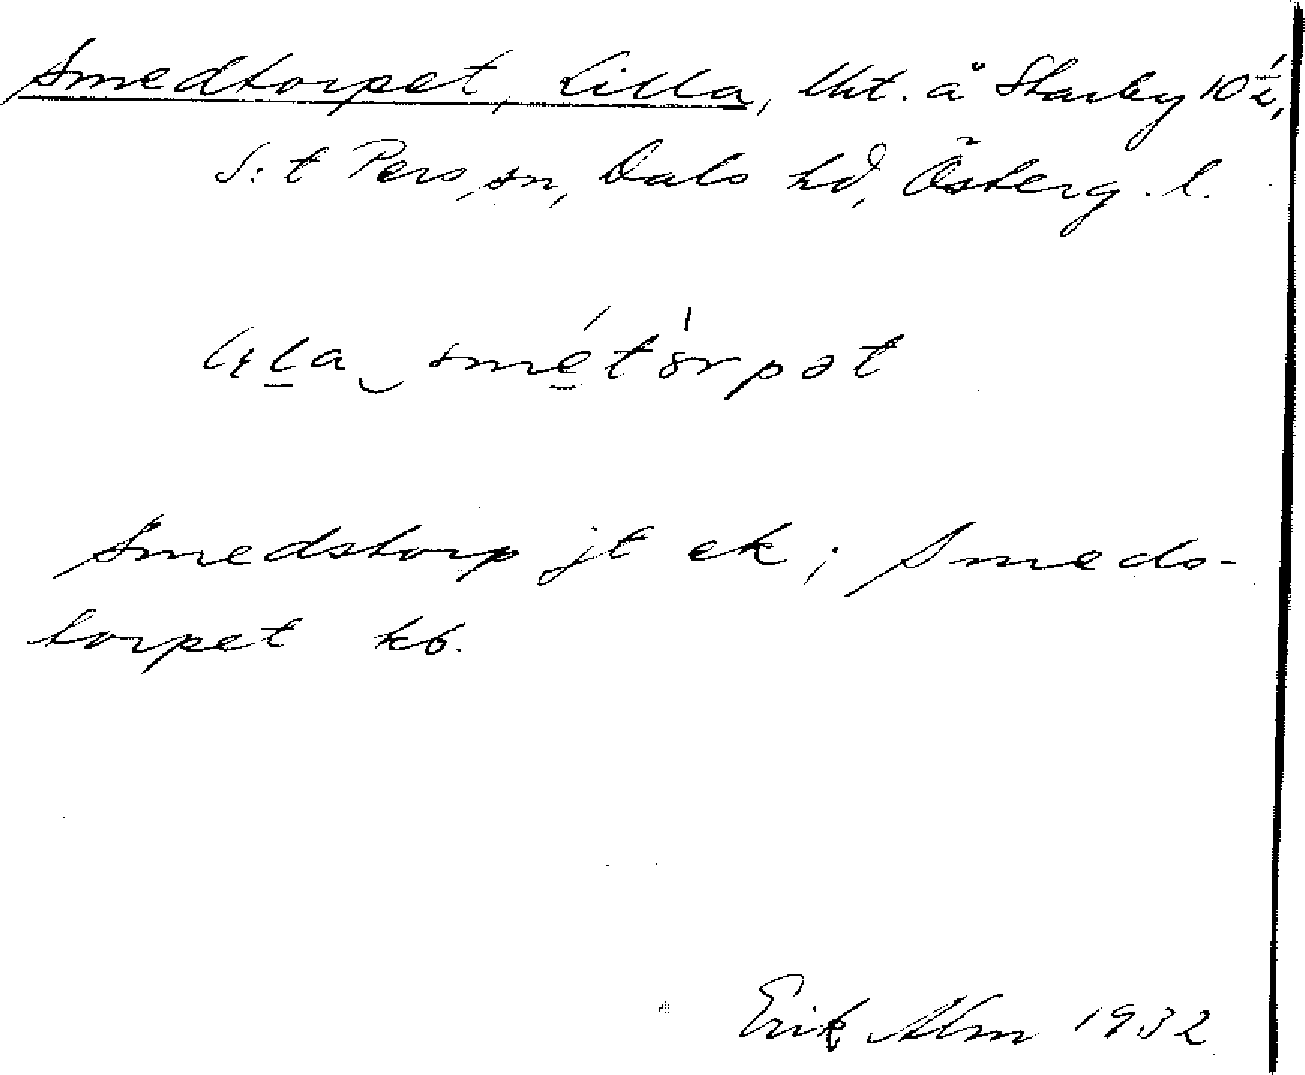 Smedtorpet, Lilla, lht. å Starby 10½,
S:t Pers sn, Dals hd, Österg. l.
smétòrpət
Smedstorp jt ek; Smeds-
torpet kb.
Erik Alm 1932